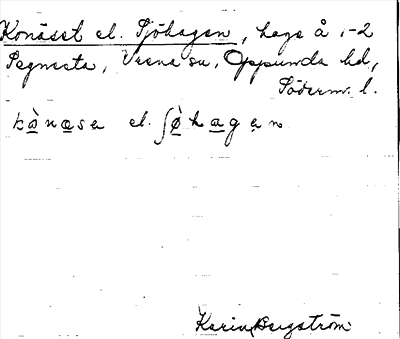 Konäset el. Sjöhagen, hage å 1-2
Segnesta, Vrena sn, Oppunda hd,
Söderm. l.
kò̱næ̱sə el. ʃø̱̀ha̱gən
Karin Bergström